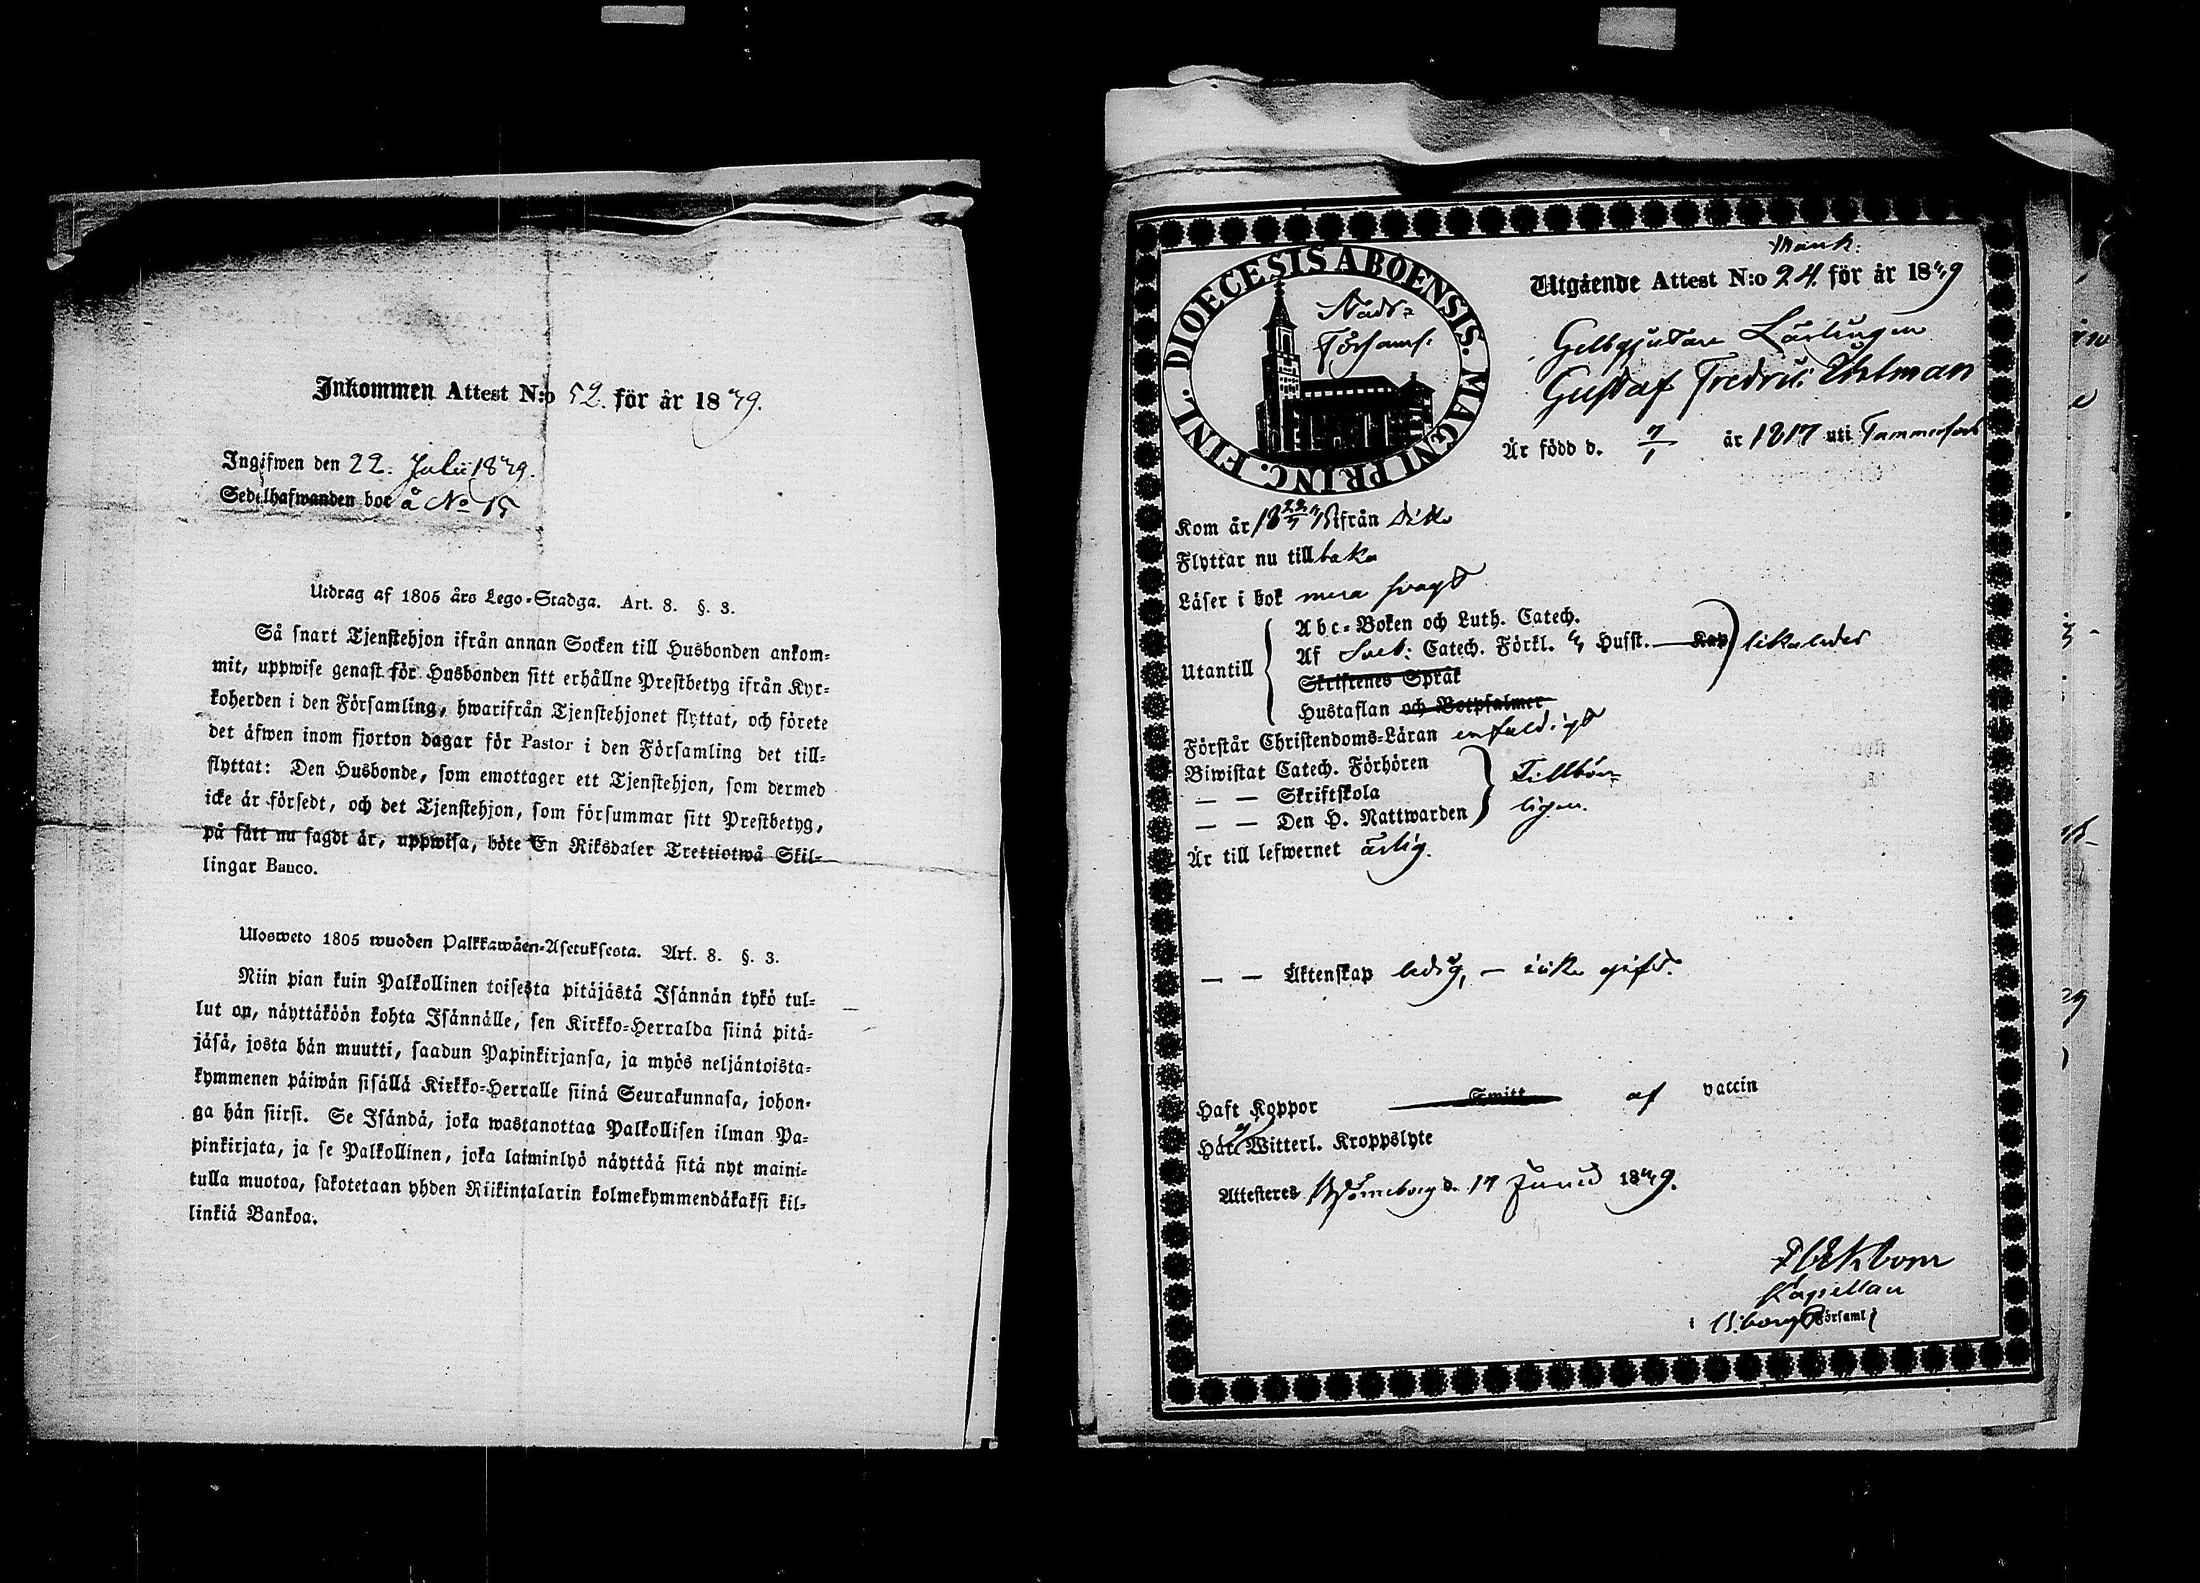 Inkommen Attest N:o 52. för år 1849.
Ingifwen den 22. Julii 1849.
Sedelhafwanden bor å No 15
Utdrag af 1805 års Lego-Stadga. Art. 8. §. 3.
Så snart Tjenstehjon ifrån annan Socken till Husbonden ankom-
mit, uppwise genast för Husbonden sitt erhållne Prestbetyg ifrån Kyr-
koherden i den Församling, hwarifrån Tjenstehjonet flyttat, och förete
det äfwen inom fjorton dagar för Pastor i den Församling det till-
flyttat: Den Husbonde, som emottager ett Tjenstehjon, som dermed
icke är försedt, och det Tjenstehjon, som försummar sitt Prestbetyg,
på sätt nu sagdt är, uppwisa, böte En Riksdaler Trettiotwå Skil-
lingar Banco.
Ulosweto 1805 wuoden Palkkawäen-Asetuksesta. Art. 8. §. 3.
Niin pian kuin Palkollinen toisesta pitäjästä Isännän tykö tul-
lut on, näyttäköön kohta Isännälle, sen Kirkko-Herralda siinä pitä-
jäsä, josta hän muutti, saadun Papinkirjansa, ja myös neljäntoista-
kymmenen päiwän sisällä Kirkko-Herralle siinä Seurakunnasa, johon-
ga hän siirsi. Se Isändä, joka wastanottaa Palkollisen ilman Pa-
pinkirjata, ja se Palkollinen, joka laiminlyö näyttää sitä nyt maini-
tulla muotoa, sakotetaan yhden Riikintalarin kolmekymmendäkaksi kil-
linkiä Bankoa.
DIOECESIS ABOENSIS. MAGNI PRINC. FINL.
Stads-
Församl.
Mank:
Utgående Attest N:o 24. för år 1849
Gelbgjutare Lärlingen
Gustaf Fredric Uhlman
Är född d. 7/1 år 1817 uti Tammerfors
Kom år 18 22/7 45 ifrån ditto
Flyttar nu tillbaka
Läser i bok mera svagt
Utantill
Abc-Boken och Luth. Catech.
Af Sveb: Catech. Förkl. Husst. — Kap likaledes
Skriftenes Språk
Hustaflan och Botpsalmer
Förstår Christendoms-Läran enfaldigt
Biwistat Catech. Förhören
— — Skriftskola
— — Den H. Nattwarden
Tillbör-
ligen.
Är till lefwernet ärlig.
— — Äktenskap ledig, — icke gift.
Haft Koppor Smitt af vaccin
Har Witterl. Kroppslyte
Attesteres Björneborg d. 17 Junii 1849.
Ekbom
Kapellan
i B:borgs Församl